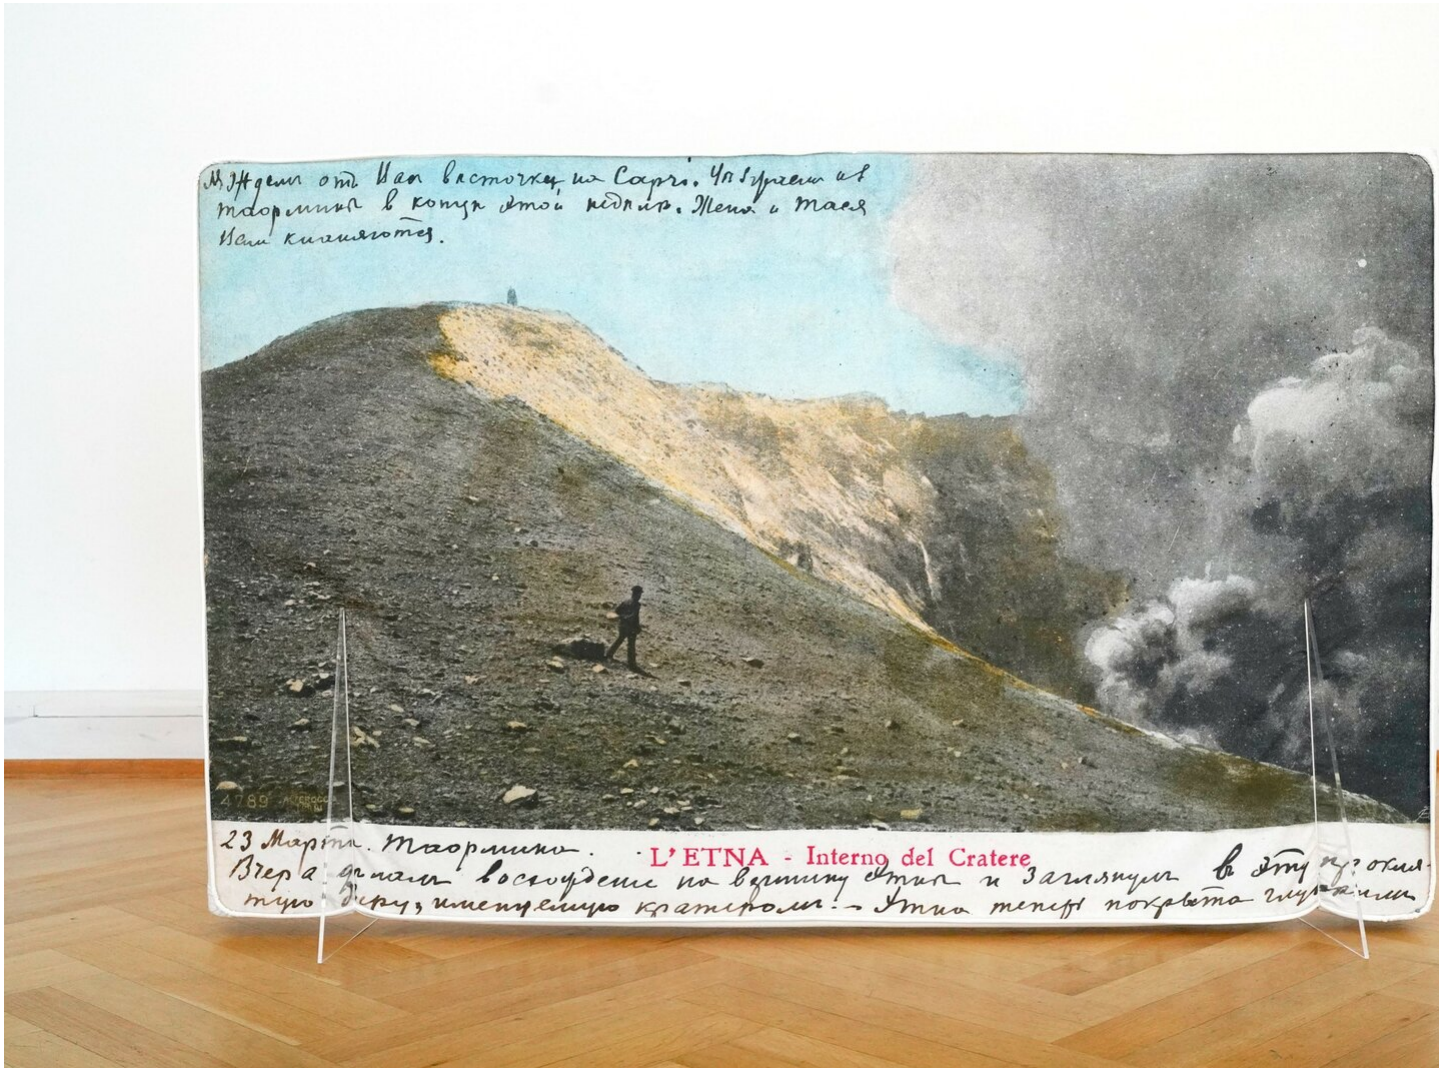 Ждем от Вас весточку на Capri. Уѣзжаем из
Таормины в конце этой недѣли. Жена и Тася
Вам кланяются.
4789
23 Марта. Таормина.
L'ETNA - Interno del Cratere
Вчера делал восхождение на вершину Этны и заглянул в эту
дыру, именуемую кратером. - Этна теперь покрыта